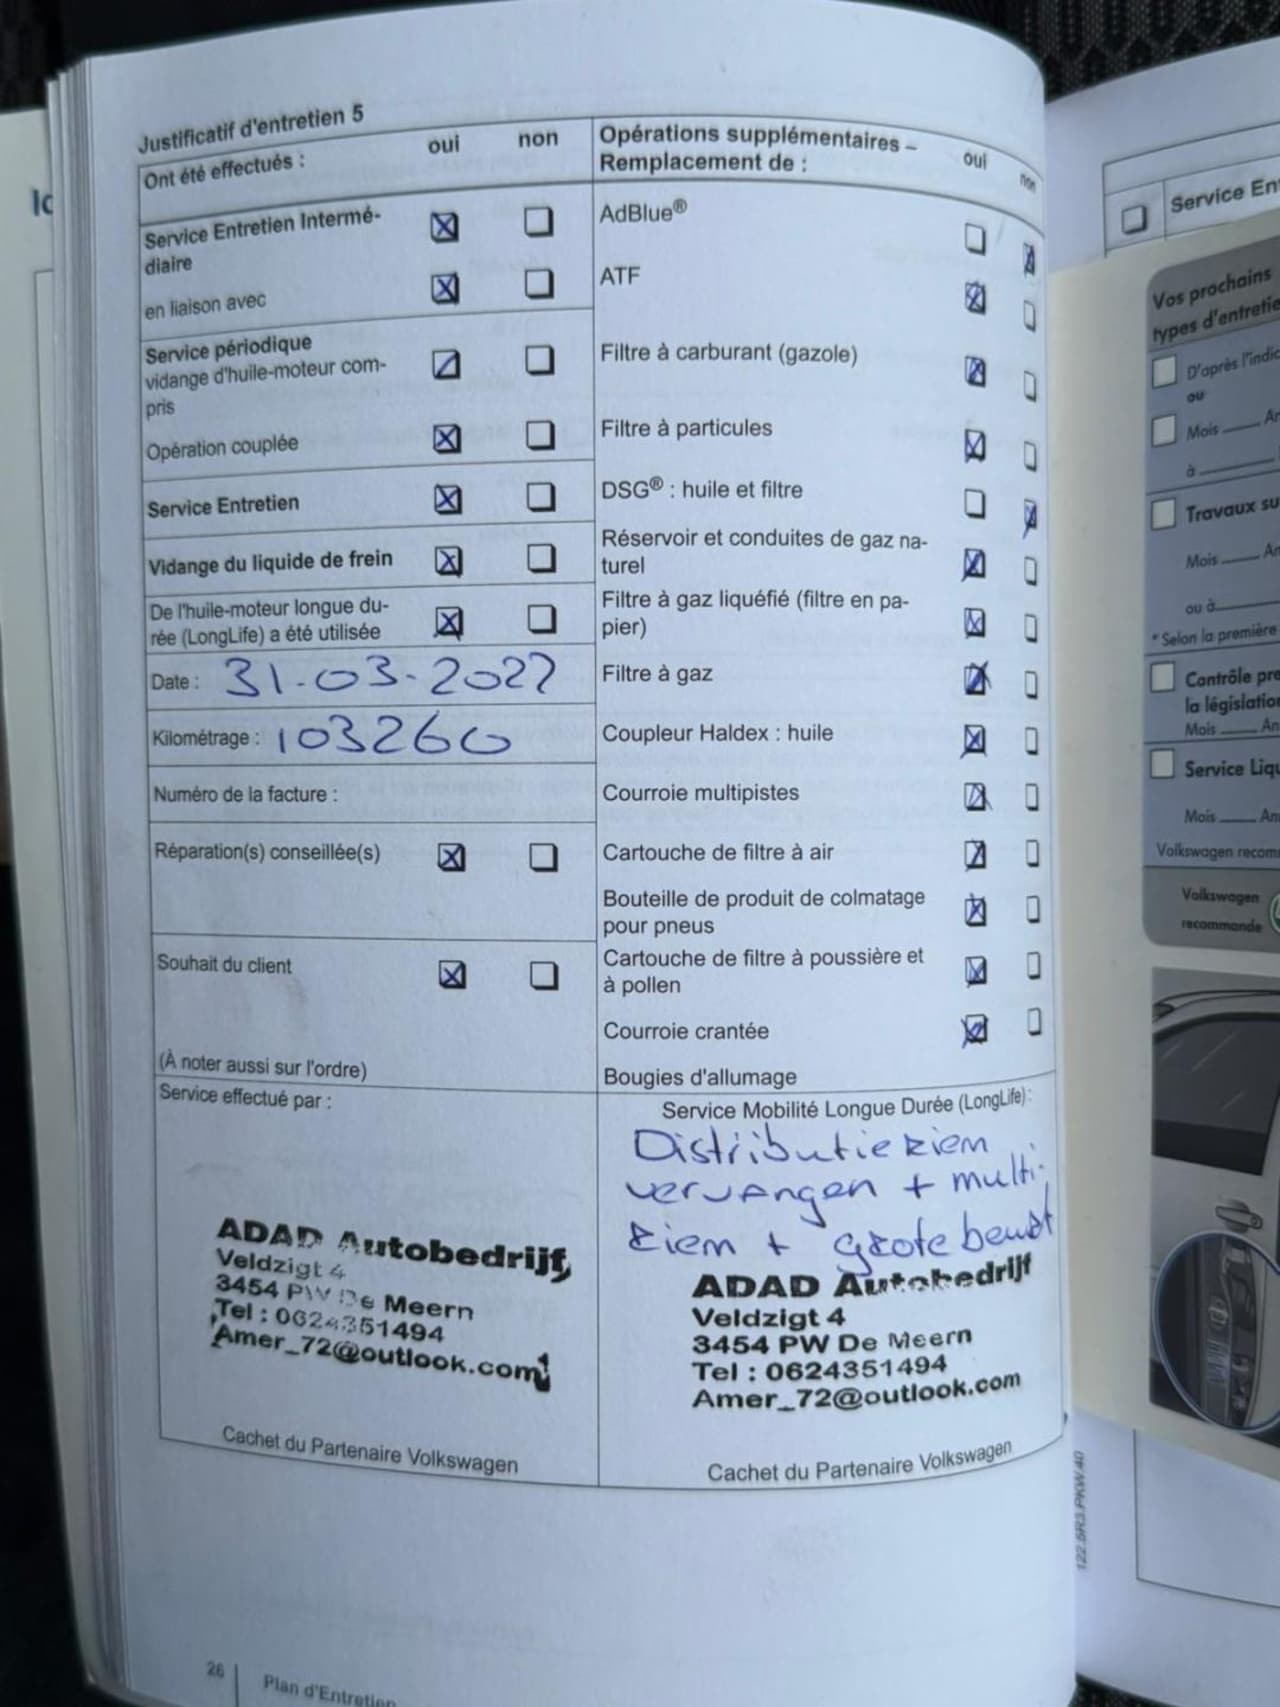 Justificatif d'entretien 5
Ont été effectués :
oui
non
Service Entretien Intermé-
diaire
en liaison avec
Service périodique
vidange d'huile-moteur com-
pris
Opération couplée
Service Entretien
Vidange du liquide de frein
De l'huile-moteur longue du-
rée (LongLife) a été utilisée
Date : 31-03-2022
Kilométrage : 103260
Numéro de la facture :
Réparation(s) conseillée(s)
Souhait du client
(À noter aussi sur l'ordre)
Service effectué par :
ADAD Autobedrijf
Veldzigt 4
3454 PW De Meern
Tel : 0624351494
Amer_72@outlook.com
Cachet du Partenaire Volkswagen
Opérations supplémentaires –
Remplacement de :
oui
non
AdBlue®
ATF
Filtre à carburant (gazole)
Filtre à particules
DSG® : huile et filtre
Réservoir et conduites de gaz na-
turel
Filtre à gaz liquéfié (filtre en pa-
pier)
Filtre à gaz
Coupleur Haldex : huile
Courroie multipistes
Cartouche de filtre à air
Bouteille de produit de colmatage
pour pneus
Cartouche de filtre à poussière et
à pollen
Courroie crantée
Bougies d'allumage
Service Mobilité Longue Durée (LongLife) :
Distributieriem
vervangen + multi
riem + grote beurt
ADAD Autobedrijf
Veldzigt 4
3454 PW De Meern
Tel : 0624351494
Amer_72@outlook.com
Cachet du Partenaire Volkswagen
122.5R3.PKW.40
26
Plan d'Entretien
Service
Vos prochains
types
D'après
ou
Mois
à
Travaux
Mois
ou à
* Selon la première
Contrôle
la
Mois
Service
Mois
Volkswagen
Volkswagen
recommande